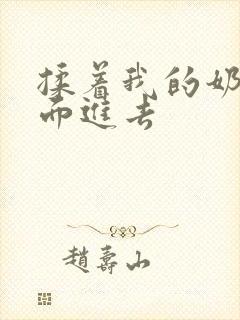 揉着我的奶
而进去
趙壽山